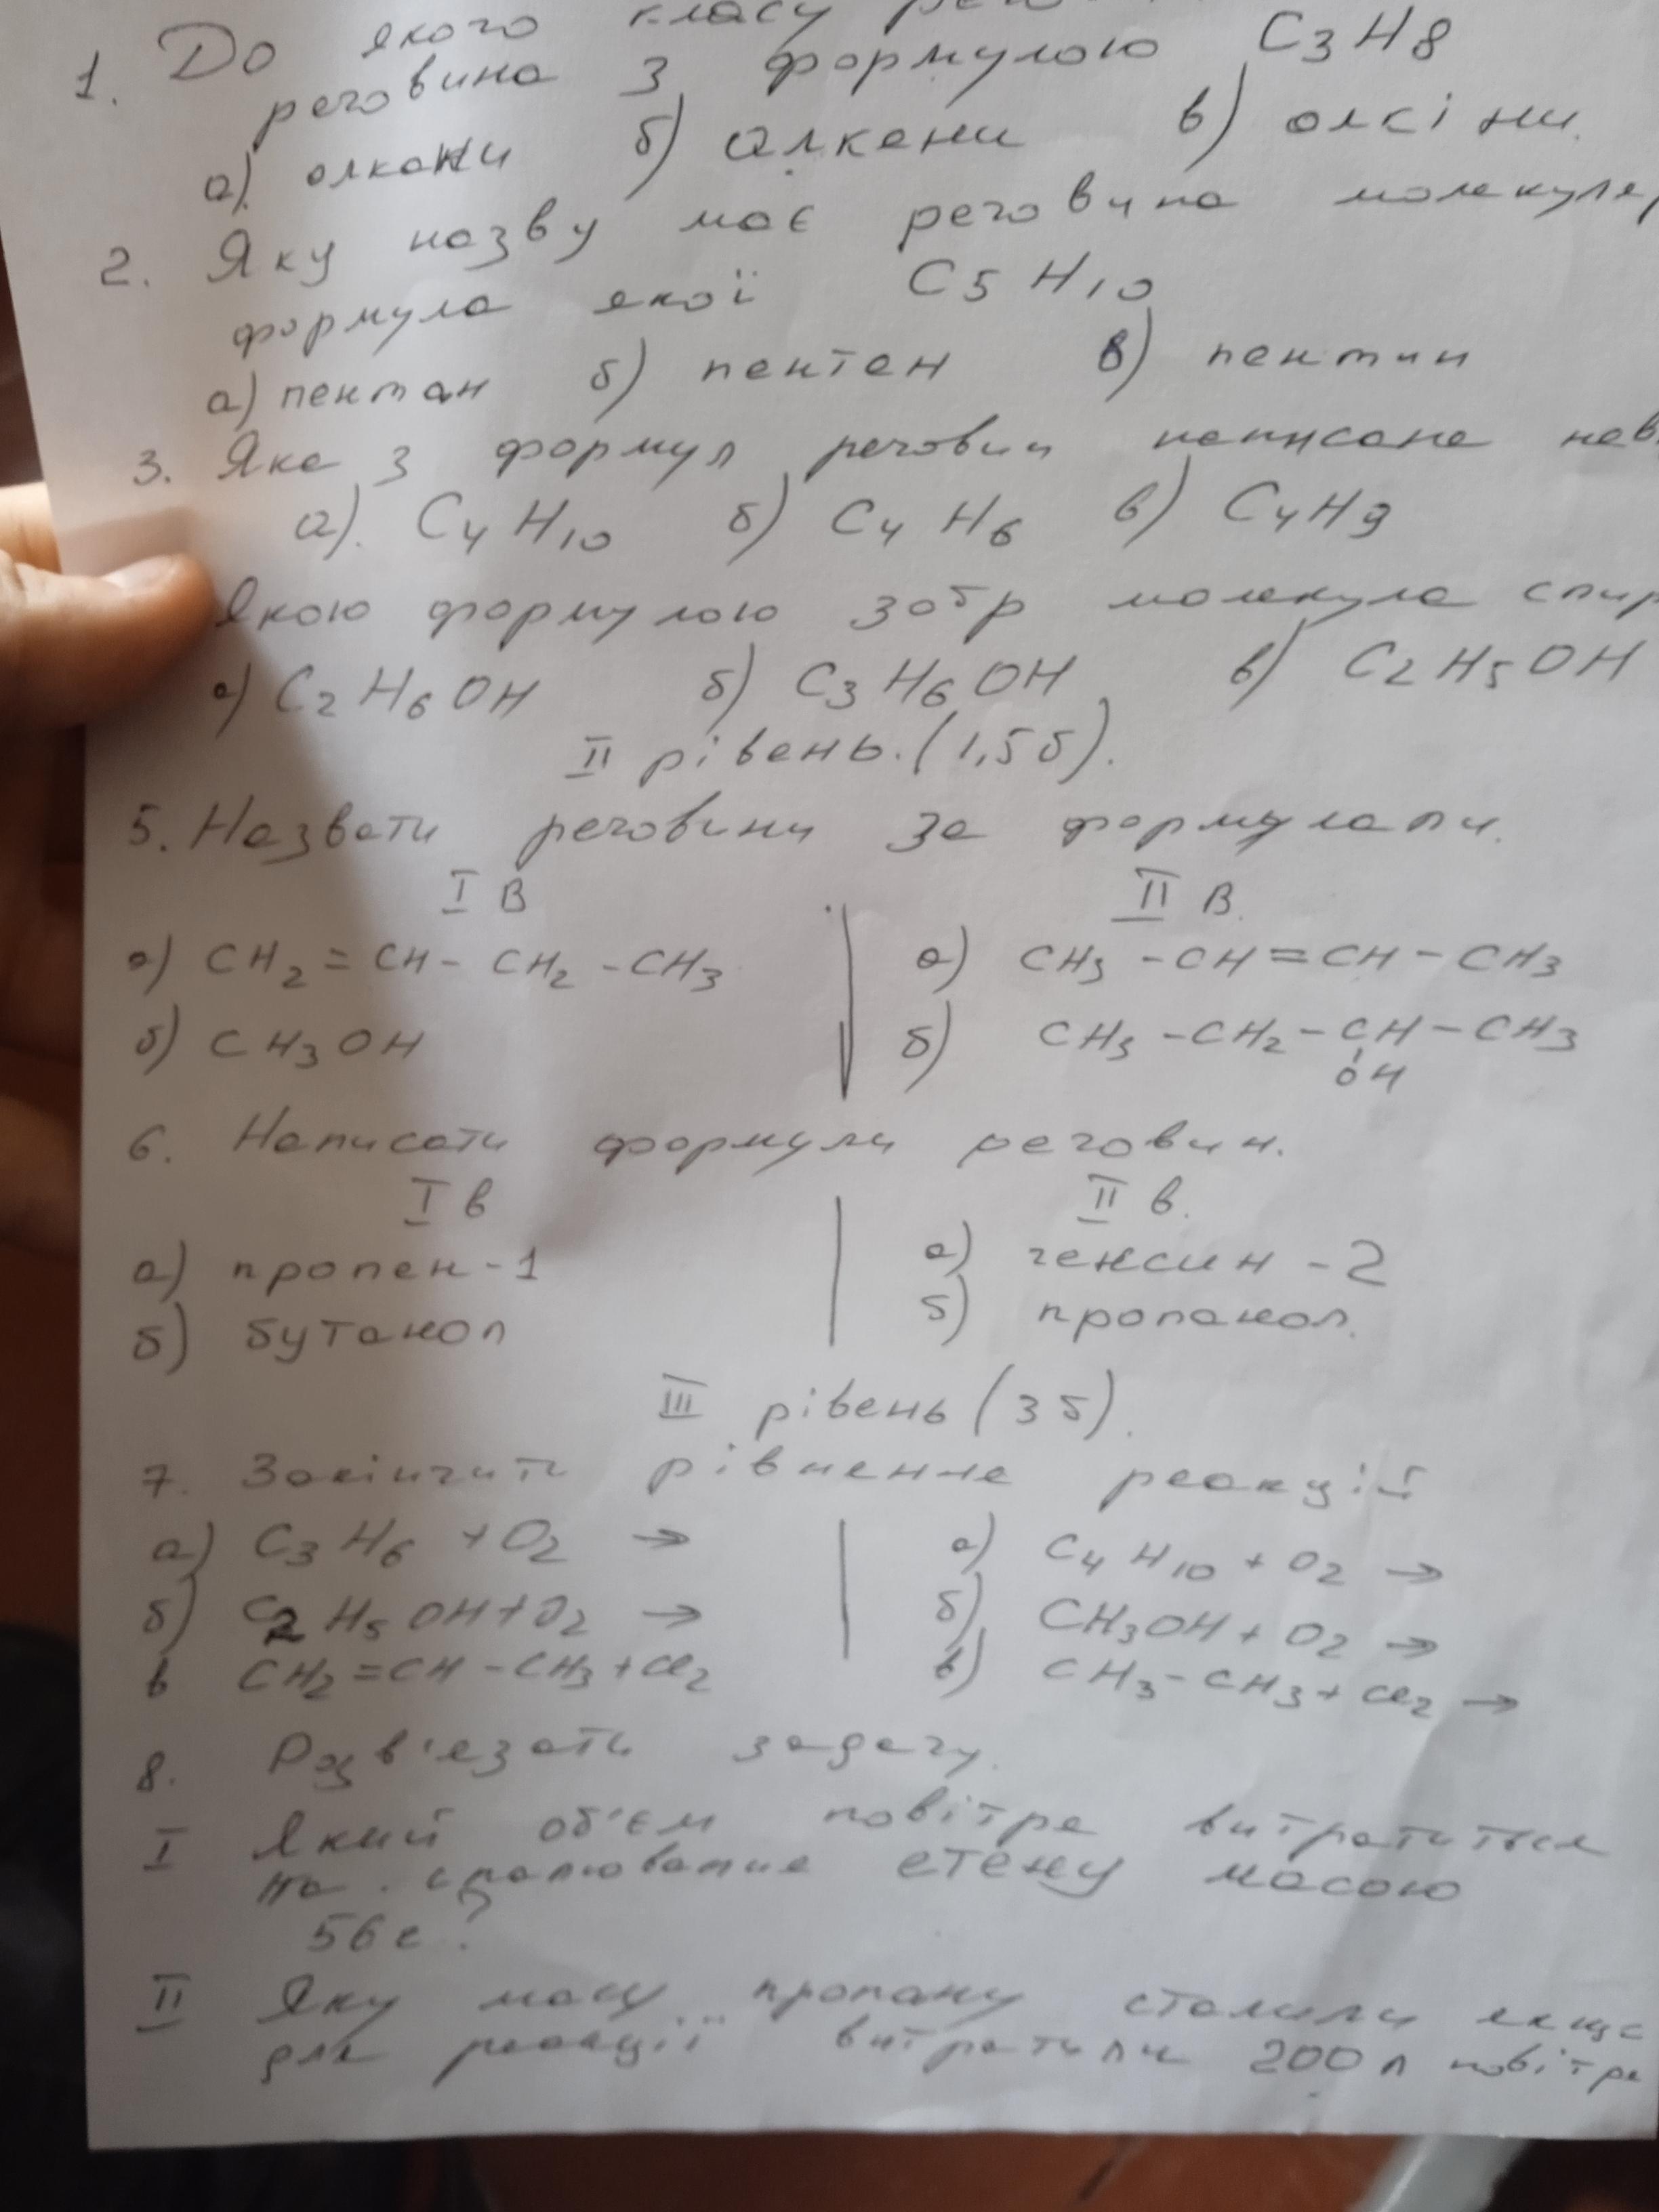 1. До якого класу
речовина з формулою C3H8
а) алкани б) алкени в) алкіни.
2. Яку назву має речовина молекуляр
формула якої C5H10
а) пентан б) пентен в) пентин
3. Яка з формул речовин написана нев
а). C4H10 б) C4H6 в) C4H9
Якою формулою зобр молекула спир
а) C2H6OH б) C3H6OH в) C2H5OH
II рівень. (1,5 б).
5. Назвати речовини за формулами.
I В II В.
а) CH2=CH-CH2-CH3 а) CH3-CH=CH-CH3
б) CH3OH б) CH3-CH2-CH-CH3
OH
6. Написати формули речовин.
I в II в.
а) пропен-1 а) гексин-2
б) бутанол б) пропанол.
III рівень (3 б).
7. Закінчити рівняння реакцій
а) C3H6 + O2 → а) C4H10 + O2 →
б) C2H5OH + O2 → б) CH3OH + O2 →
в CH2=CH-CH3+Cl2 в) CH3-CH3+Cl2 →
8. Розв'язати задачу.
I Який об'єм повітря витратиться
на спалювання етену масою
56г?
II Яку масу пропану спалили якщо
для реакції витратили 200 л повітря